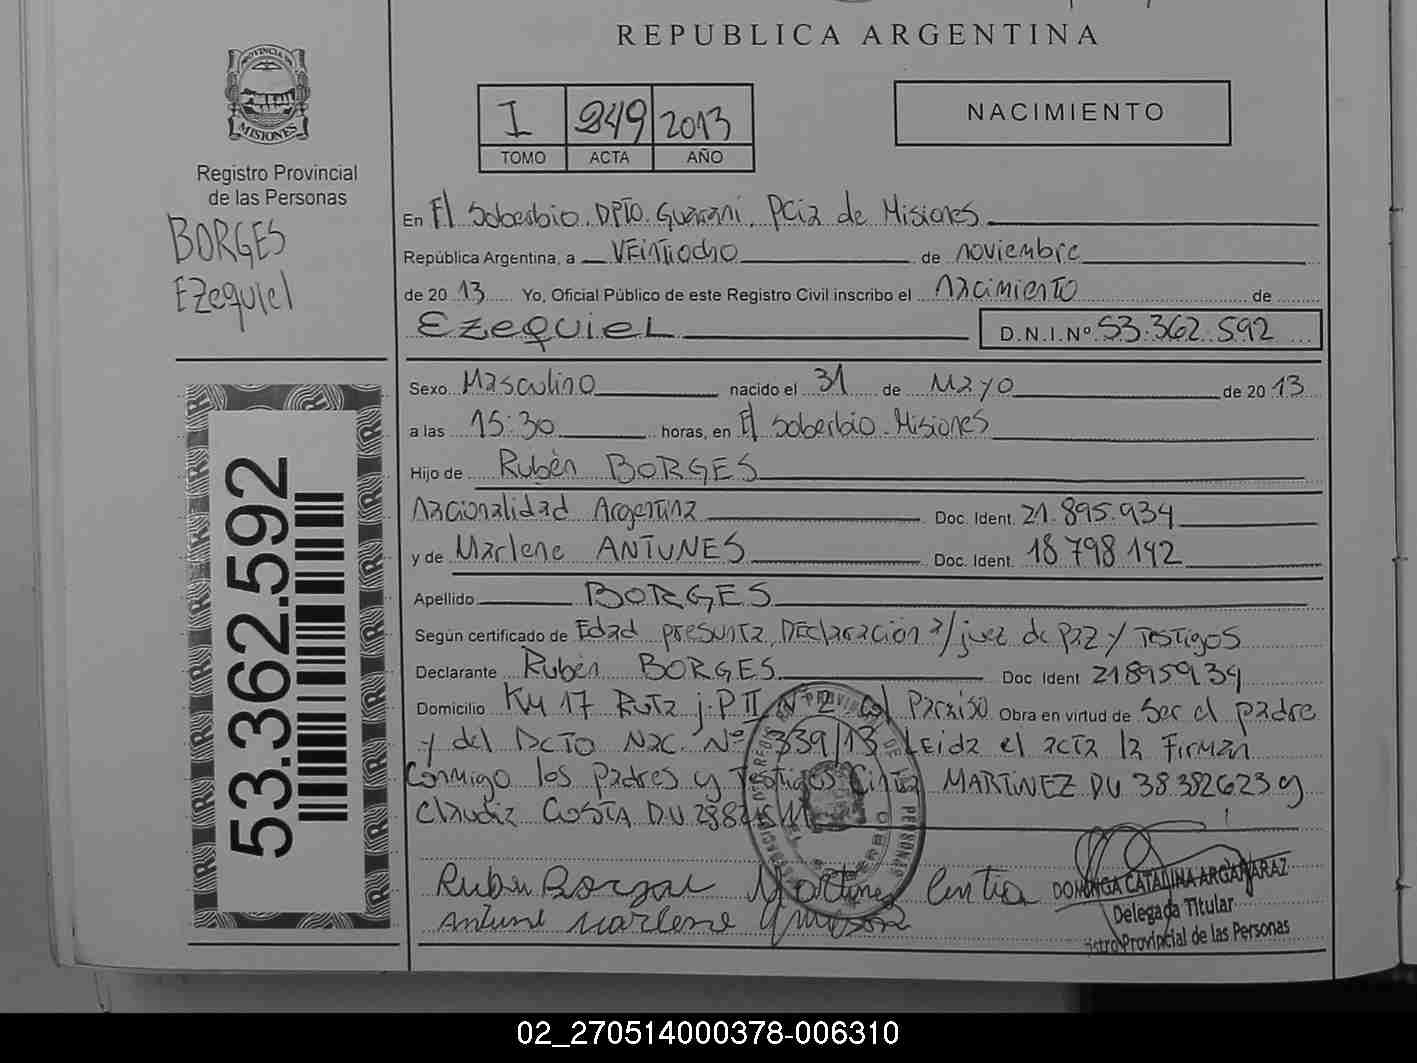 REPUBLICA ARGENTINA
PROVINCIA DE
MISIONES
Registro Provincial
de las Personas
BORGES
Ezequiel
I 249 2013
TOMO ACTA AÑO
NACIMIENTO
En El Soberbio. DPTO. Guarani. Pcia de Misiones
República Argentina, a VEintiocho de noviembre
de 20 13 Yo, Oficial Público de este Registro Civil inscribo el Nacimiento de
EzequieL D.N.I.Nº 53.362.592
Sexo Masculino nacido el 31 de Mayo de 20 13
a las 15:30 horas, en El Soberbio. Misiones
Hijo de Rubén BORGES
Nacionalidad Argentina Doc. Ident. 21.895.934
y de Marlene ANTUNES Doc. Ident. 18.798.142
Apellido BORGES
Según certificado de Edad presunta, DEclaración a/juez de Paz y Testigos
Declarante Rubén BORGES Doc Ident 21895934
Domicilio Km 17 Ruta j.P II Nº 2 Col Paraiso Obra en virtud de Ser el padre
y del DCTO Nac. Nº 339/13 Leida el acta la Firman
Conmigo los padres y Testigos Cintia MARTINEZ DU 38382623 y
Claudia COSTA D.U
53.362.592
Ruben Martinez Cintia
Antune Marlene
DOMINGA CATALINA ARGAÑARAZ
Delegada Titular
istro Provincial de las Personas
02_270514000378-006310